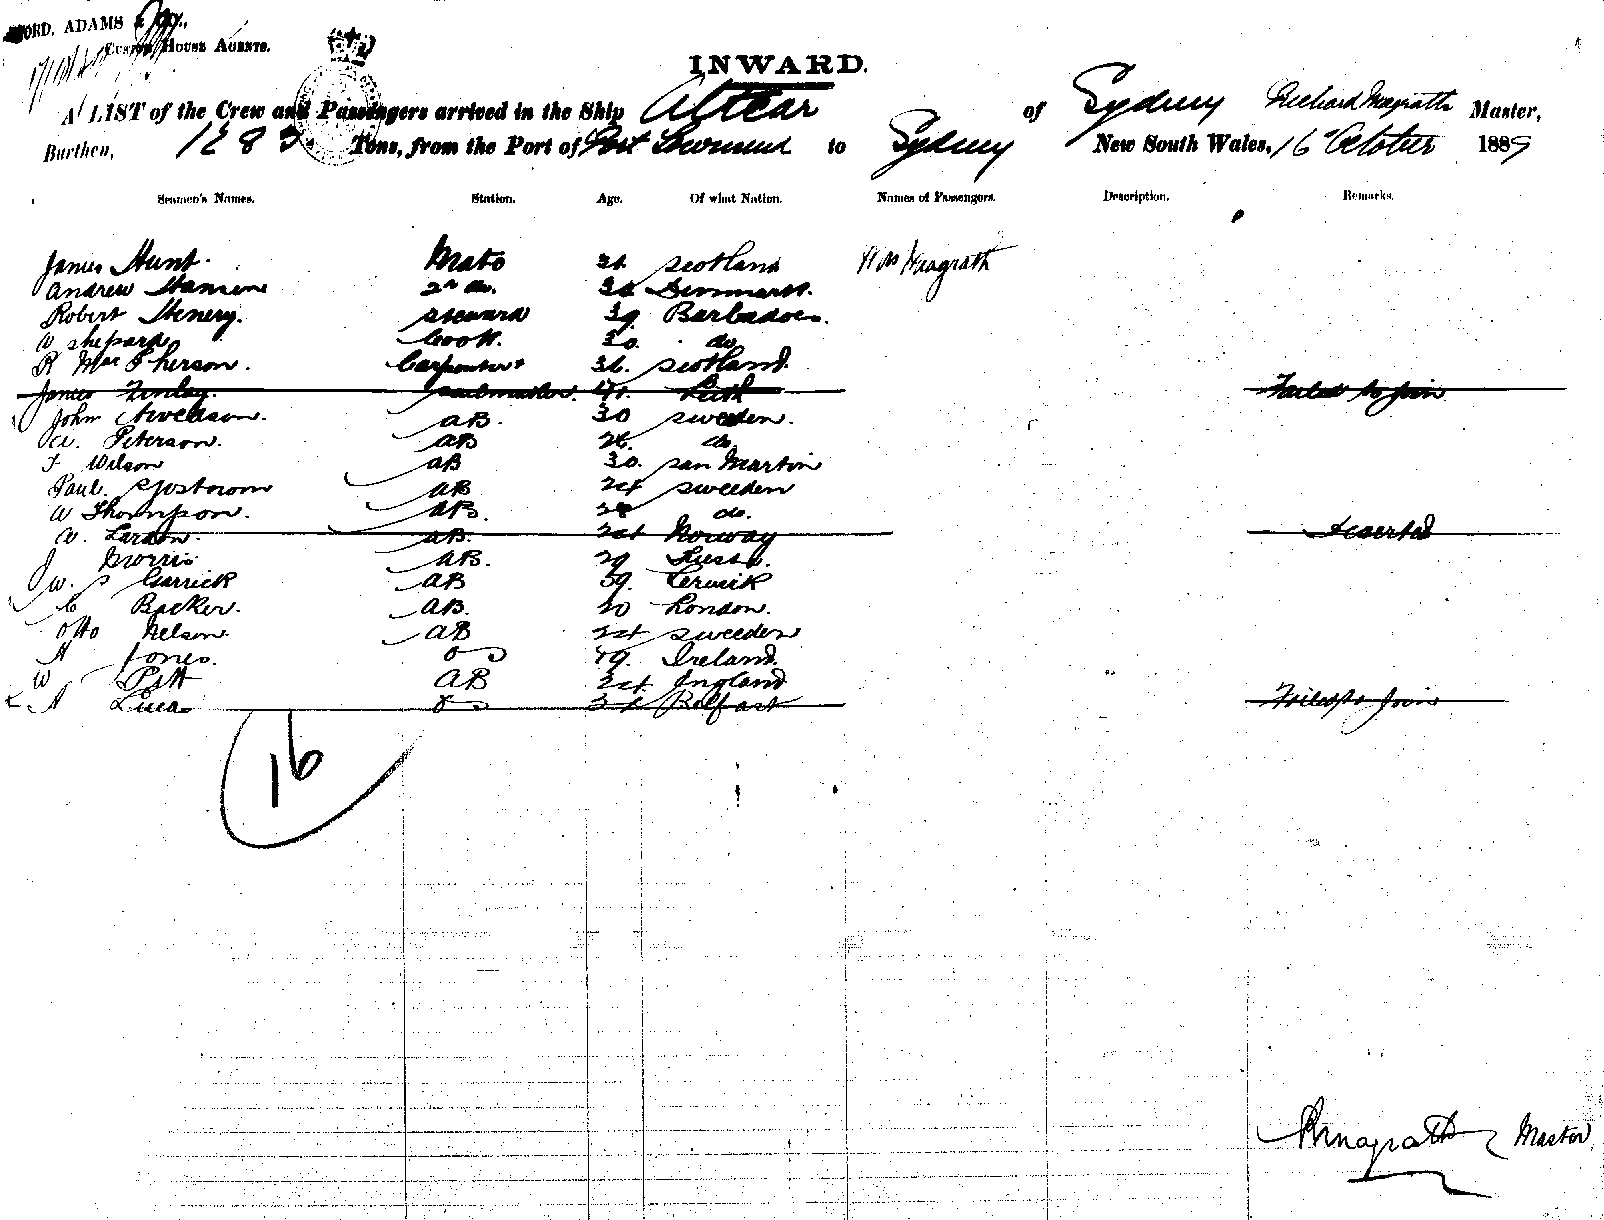 ORD, ADAMS & Co.,
CUSTOM HOUSE AGENTS.
INWARD.
A LIST of the Crew and Passengers arrived in the Ship Altcar of Sydney Richard Magrath Master,
Burthen, 1283 Tons, from the Port of Port Townsend to Sydney New South Wales, 16 October 1889
Seamen's Names. Station. Age. Of what Nation. Names of Passengers. Description. Remarks.
James Hunt. Mate scotland Wm Magrath
Andrew Hansen 2nd do. Denmark.
Robert Henery. steward 39 Barbadoes.
W shepard Cook. 30. do
R MacPherson. Carpenter 36. scotland.
James Finlay. sailmaker. Leith Failed to join
John AB. 30 sweden.
Peterson. AB do
F Wilson AB 30. san Martin
Paul AB 24 sweeden
W Thompson. AB. 28 do.
Larson. AB. 24 Norway Deserted
J Morris AB. 29
W. S Garrick AB 39. Lerwick
C Backer. AB. 20 London.
Otto Nelson. AB 24 sweeden
A Jones. OS 19. Ireland.
W Pitt AB 24. England
A Lucas OS Belfast Failed to Join
16
RMagrath Master